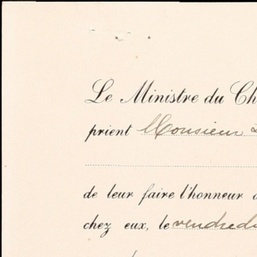 Le Ministre du Ch
prient Monsieur
de leur faire l'honneur d
chez eux, le vendredi